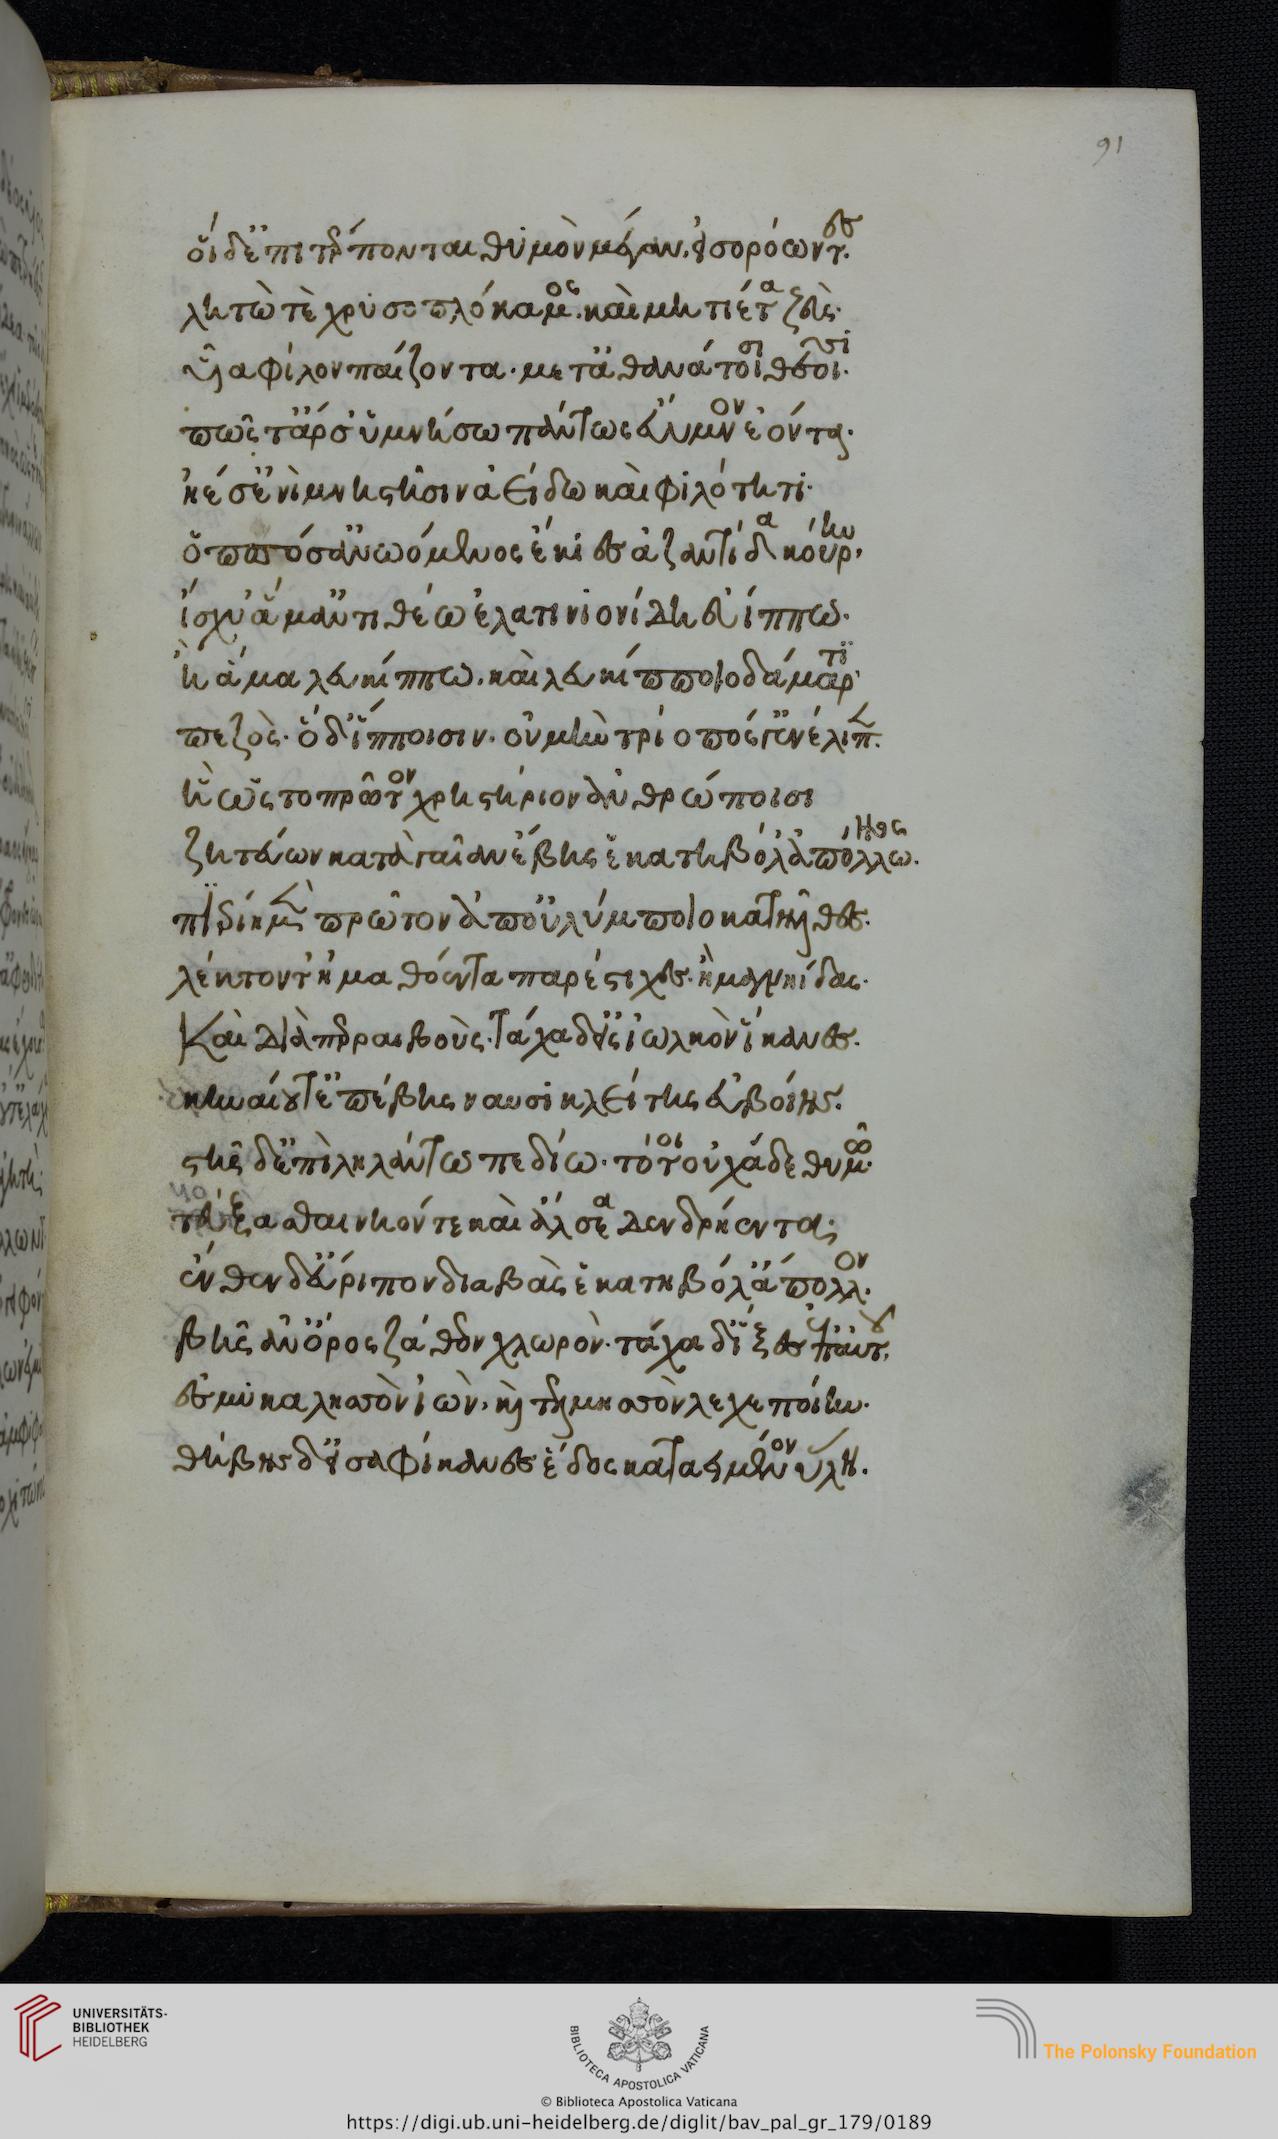 91
οἱ δ' ἐπιτέρπονται θυμὸν μέγαν, εἰσορόωντες.
λητώ τε χρυσοπλόκαμος. καὶ μητίετα ζεὺς.
υἷα φίλον παίζοντα. μετ' ἀθανάτοισι θεοῖσι.
πῶς τ' ἄρ σ' ὑμνήσω πάντως εὔυμνον ἐόντα.
ἠέ σ' ἐνὶ μνηστῆσιν ἀείδω καὶ φιλότητι.
ὅππόσ' ἀνωόμενος ἔκιες ἀζαντίδα κούρην,
ἴσχυ' ἅμ' ἀντιθέω ἐλατινιονίδη εὐίππω.
ἢ ἅμα λευκίππω. καὶ λευκίπποιο δάμαρτι
πεζὸς. ὁ δ' ἵπποισιν. οὐ μὴν τρίοπός γ' ἐνέλιπεν.
ἢ ὡς τὸ πρῶτον χρηστήριον ἀνθρώποισι
ζητεύων κατὰ γαῖαν ἔβης ἑκατηβόλ' ἄπολλων.
πιερίην μὲν πρῶτον ἀπ' οὐλύμποιο κατῆλθες.
λέκτον τ' ἠμαθόεντα παρέστιχες. ἠ μαγνηίδας.
Καὶ διὰ περαιβοὺς. τάχα δ' εἰς ἰωλκὸν ἵκανες.
κηναίου τ' ἐπέβης ναυσικλείτης εὐβοίης.
στῆς δ' ἐπὶ ληλάντω πεδίω. τό τοι οὐχ ἅδε θυμῶ.
τεύξασθαι νηόν τε καὶ ἄλσεα δενδρήεντα;
ἔνθεν δ' εὔριπον διαβὰς ἑκατηβόλ' ἄπολλον.
βῆς ἀν' ὄρος ζάθεον χλωρὸν. τάχα δ' ἷξες ἀπ' αὐτοῦ,
ἐς μυκαλησσὸν ἰὼν, καὶ τελμησσὸν λεχεποίην.
θήβης δ' εἰσαφίκανες ἕδος καταειμένον ὕλη.
UNIVERSITÄTS-
BIBLIOTHEK
HEIDELBERG
BIBLIOTECA APOSTOLICA VATICANA
The Polonsky Foundation
© Biblioteca Apostolica Vaticana
https://digi.ub.uni-heidelberg.de/diglit/bav_pal_gr_179/0189